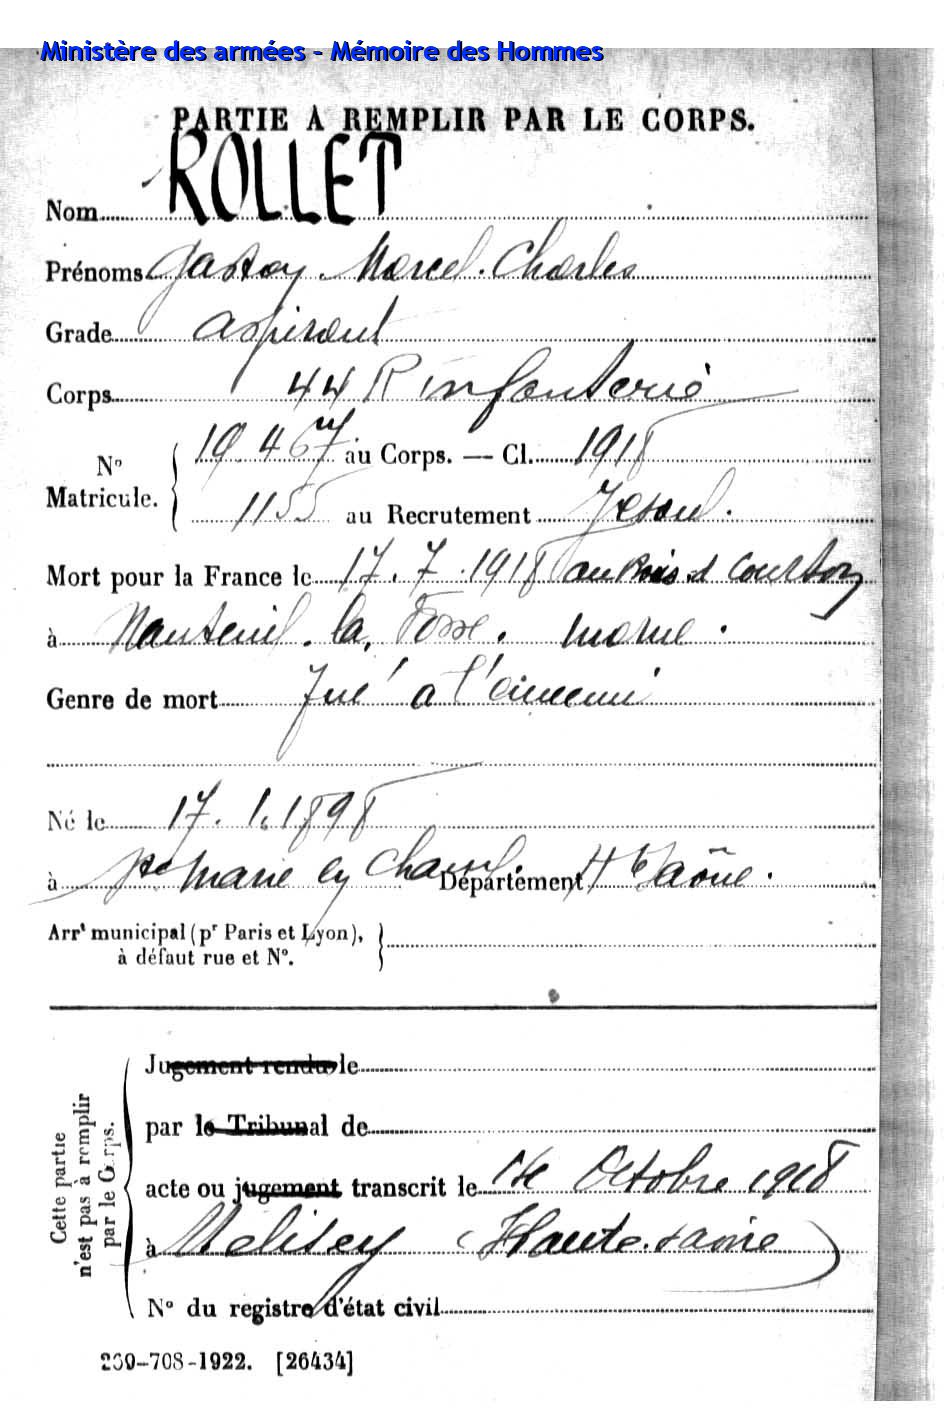 Ministère des armées - Mémoire des Hommes
PARTIE À REMPLIR PAR LE CORPS.
Nom ROLLET
Prénoms Gaston Marcel Charles
Grade aspirant
Corps 44 R infanterie
N° Matricule. 19.467 au Corps. — Cl. 1918
1155 au Recrutement Vesoul.
Mort pour la France le 17.7.1918 au Bois d Courton
à Nanteuil. la. Fosse. Marne.
Genre de mort Tué à l'ennemi
Né le 17.1.1898
à Ste Marie en Chan. Département Hte Saône.
Arrt municipal (pr Paris et Lyon),
à défaut rue et N°.
Cette partie n'est pas à remplir par le Corps.
Jugement rendu le
par le Tribunal de
acte ou jugement transcrit le Octobre 1918
à Melisey (Haute-Saône)
N° du registre d'état civil
-708-1922. [26434]